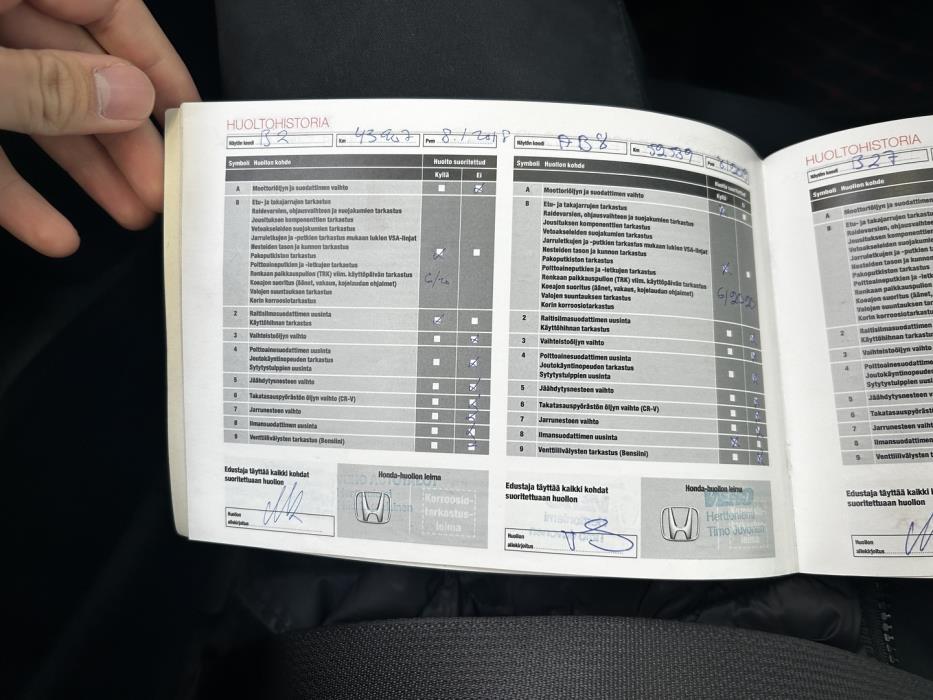 HUOLTOHISTORIA
Näytön koodi B2 Km 43967 Pvm 8.1.2018
Symboli Huollon kohde Huolto suoritettud
Kyllä Ei
A Moottoriöljyn ja suodattimen vaihto
B Etu- ja takajarrujen tarkastus
Raidevarsien, ohjausvaihteen ja suojakumien tarkastus
Jousituksen komponenttien tarkastus
Vetoakseleiden suojakumien tarkastus
Jarruletkujen ja -putkien tarkastus mukaan lukien VSA-linjat
Nesteiden tason ja kunnon tarkastus
Pakoputkiston tarkastus
Polttoaineputkien ja -letkujen tarkastus
Renkaan paikkauspullon (TRK) viim. käyttöpäivän tarkastus
Koeajo suoritus (äänet, vakaus, kojelaudan ohjaimet)
Valojen suuntauksen tarkastus
Korin korroosiotarkastus
2 Raitisilmasuodattimen uusinta
Käyttöhihnan tarkastus
3 Vaihteistoöljyn vaihto
4 Polttoainesuodattimen uusinta
Joutokäyntinopeuden tarkastus
Sytytystulppien uusinta
5 Jäähdytysnesteen vaihto
6 Takatasauspyörästön öljyn vaihto (CR-V)
7 Jarrunesteen vaihto
8 Ilmansuodattimen uusinta
9 Venttiilivälysten tarkastus (Bensiini)
Edustaja täyttää kaikki kohdat
suoritettuaan huollon
Huollon
allekirjoitus
Honda-huollon leima
Korroosio-
tarkastus-
leima
Näytön koodi AB8 Km 52589 Pvm
Symboli Huollon kohde Huolto suoritettud
Kyllä Ei
A Moottoriöljyn ja suodattimen vaihto
B Etu- ja takajarrujen tarkastus
Raidevarsien, ohjausvaihteen ja suojakumien tarkastus
Jousituksen komponenttien tarkastus
Vetoakseleiden suojakumien tarkastus
Jarruletkujen ja -putkien tarkastus mukaan lukien VSA-linjat
Nesteiden tason ja kunnon tarkastus
Pakoputkiston tarkastus
Polttoaineputkien ja -letkujen tarkastus
Renkaan paikkauspullon (TRK) viim. käyttöpäivän tarkastus
Koeajo suoritus (äänet, vakaus, kojelaudan ohjaimet) 6/2020
Valojen suuntauksen tarkastus
Korin korroosiotarkastus
2 Raitisilmasuodattimen uusinta
Käyttöhihnan tarkastus
3 Vaihteistoöljyn vaihto
4 Polttoainesuodattimen uusinta
Joutokäyntinopeuden tarkastus
Sytytystulppien uusinta
5 Jäähdytysnesteen vaihto
6 Takatasauspyörästön öljyn vaihto (CR-V)
7 Jarrunesteen vaihto
8 Ilmansuodattimen uusinta
9 Venttiilivälysten tarkastus (Bensiini)
Edustaja täyttää kaikki kohdat
suoritettuaan huollon
Huollon
allekirjoitus
Honda-huollon leima
Herttoniemi
Timo Juvonen
HUOLTOHISTORIA
Näytön koodi B27
Symboli Huollon kohde
A Moottoriöljyn ja suodattimen
B Etu- ja takajarrujen
Raidevarsien,
Jousituksen
Vetoakseleiden
Jarruletkujen ja
Nesteiden tason ja kunnon
Pakoputkiston tarkastus
Polttoaineputkien
Renkaan paikkauspullon
Koeajo suoritus
Valojen suuntauksen
Korin korroosiotarkastus
2 Raitisilmasuodattimen
Käyttöhihnan tarkastus
3 Vaihteistoöljyn vaihto
4
Joutokäyntinopeuden
Sytytystulppien uusinta
5 Jäähdytysnesteen
6
7 Jarrunesteen
8 Ilmansuodattimen
9 Venttiilivälysten
Edustaja täyttää
suoritettuaan
Huollon
allekirjoitus